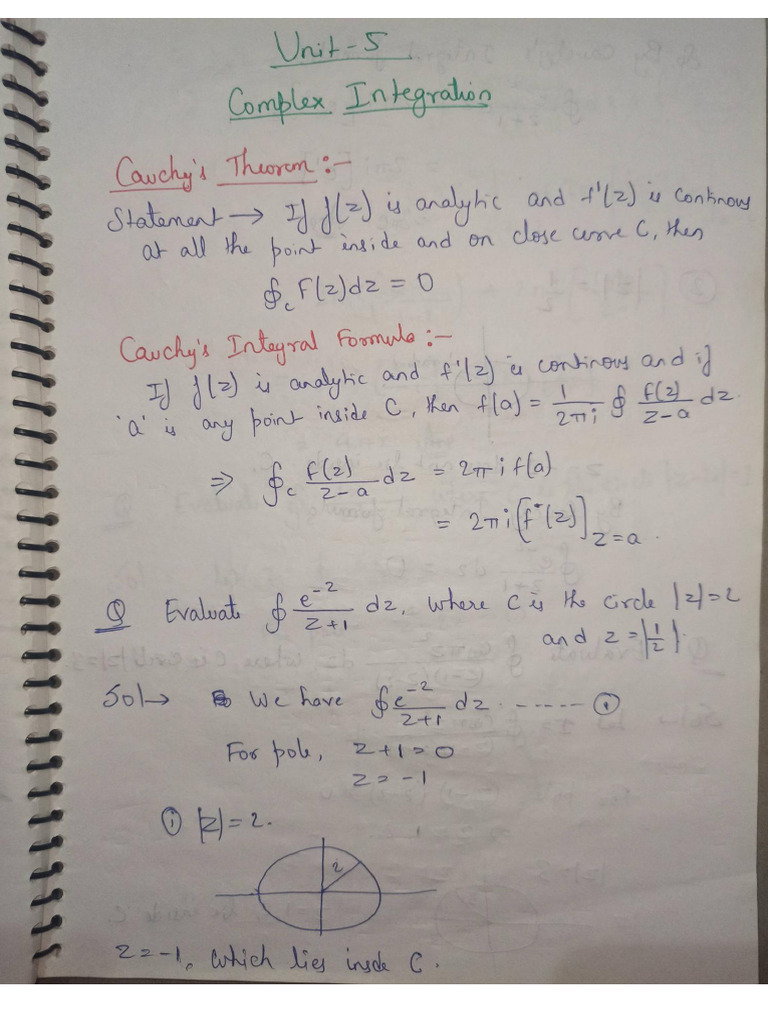 Unit-5
Complex Integration
Cauchy's Theorem:-
Statement → If f(z) is analytic and f'(z) is continous
at all the point inside and on close curve C, then
∮c f(z)dz = 0
Cauchy's Integral Formula:-
If f(z) is analytic and f'(z) is continous and if
'a' is any point inside C, then f(a) = 1/2πi ∮ f(z)/z-a dz.
⇒ ∮c f(z)/z-a dz = 2πi f(a)
= 2πi [f(z)]z=a.
Q Evaluate ∮ e^-z/z+1 dz, where C is the circle |z|=2
and z=|1/2|.
Sol→ We have ∮ e^-z/z+1 dz ------ ①
For pole, z+1=0
z=-1
① |z|=2.
2
z=-1, which lies inside C.